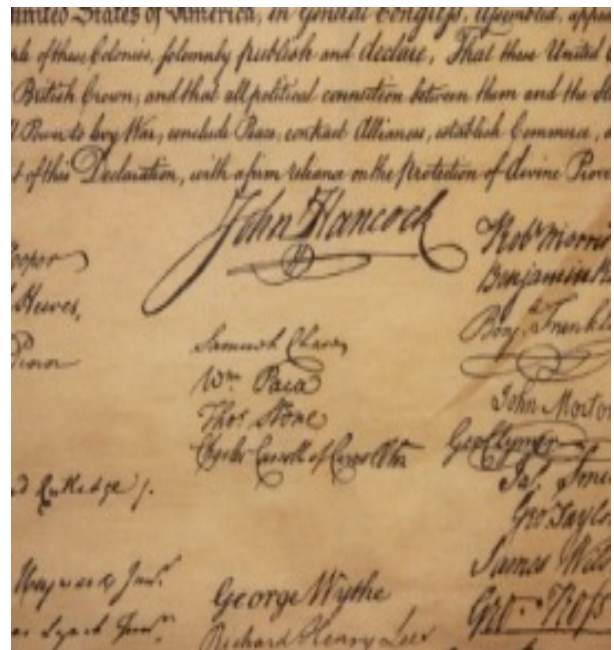 United States of America, in General Congress, Assembled, appea
ple of these Colonies, solemnly publish and declare, That these United C
British Crown, and that all political connection between them and the St
l Power to levy War, conclude Peace, contract Alliances, establish Commerce, a
t of this Declaration, with a firm reliance on the Protection of divine Provi
John Hancock
ooper
Hewes,
Penn
Samuel Chase
Wm. Paca
Thos. Stone
Charles Carroll of Carrollton
d Rutledge /.
Heyward Junr.
as Lynch Junr.
George Wythe
Richard Henry Lee
Robt Morri
Benjamin R
Benj. Frankli
John Morton
Geo Clymer
Jas. Smi
Geo. Taylo
James Wils
Geo. Ross